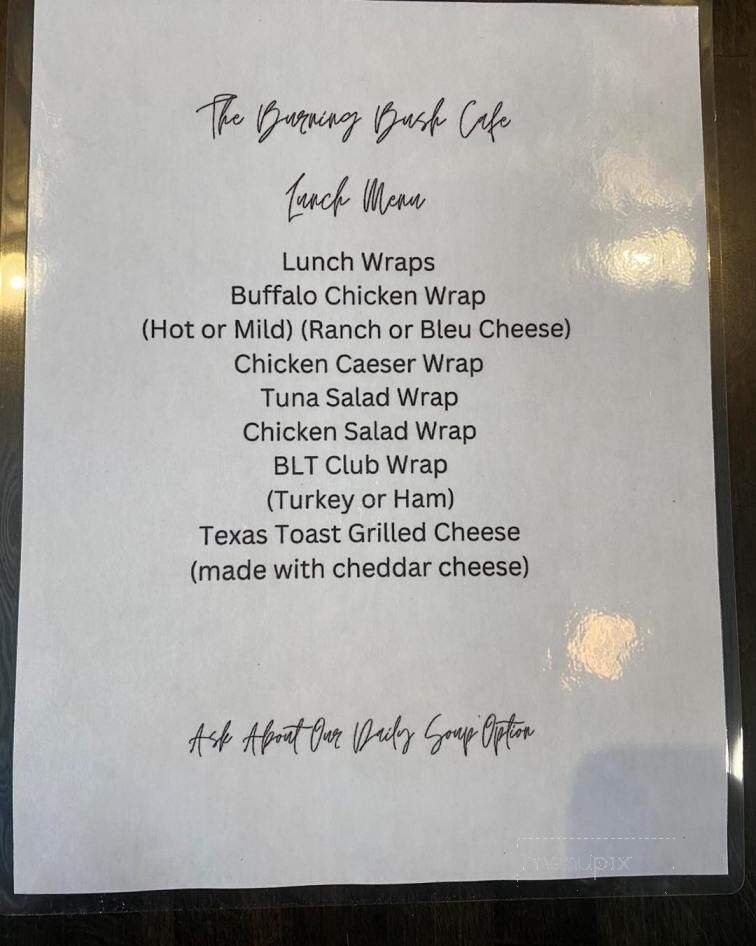 The Burning Bush Cafe
Lunch Menu
Lunch Wraps
Buffalo Chicken Wrap
(Hot or Mild) (Ranch or Bleu Cheese)
Chicken Caeser Wrap
Tuna Salad Wrap
Chicken Salad Wrap
BLT Club Wrap
(Turkey or Ham)
Texas Toast Grilled Cheese
(made with cheddar cheese)
Ask About Our Daily Soup Option
menupix